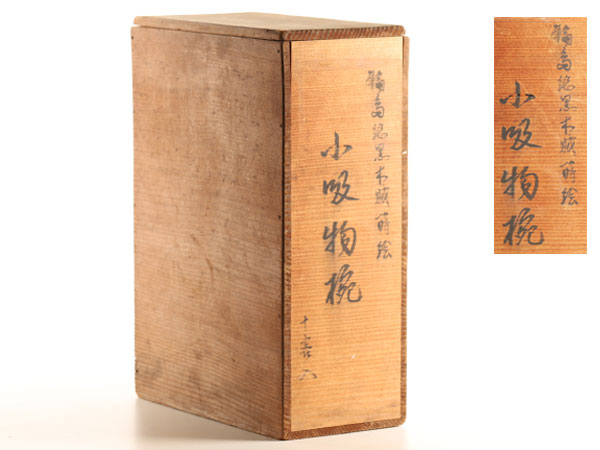 輪島塗黒木賊蒔絵
小吸物椀
十客入
輪島塗黒木賊蒔絵
小吸物椀